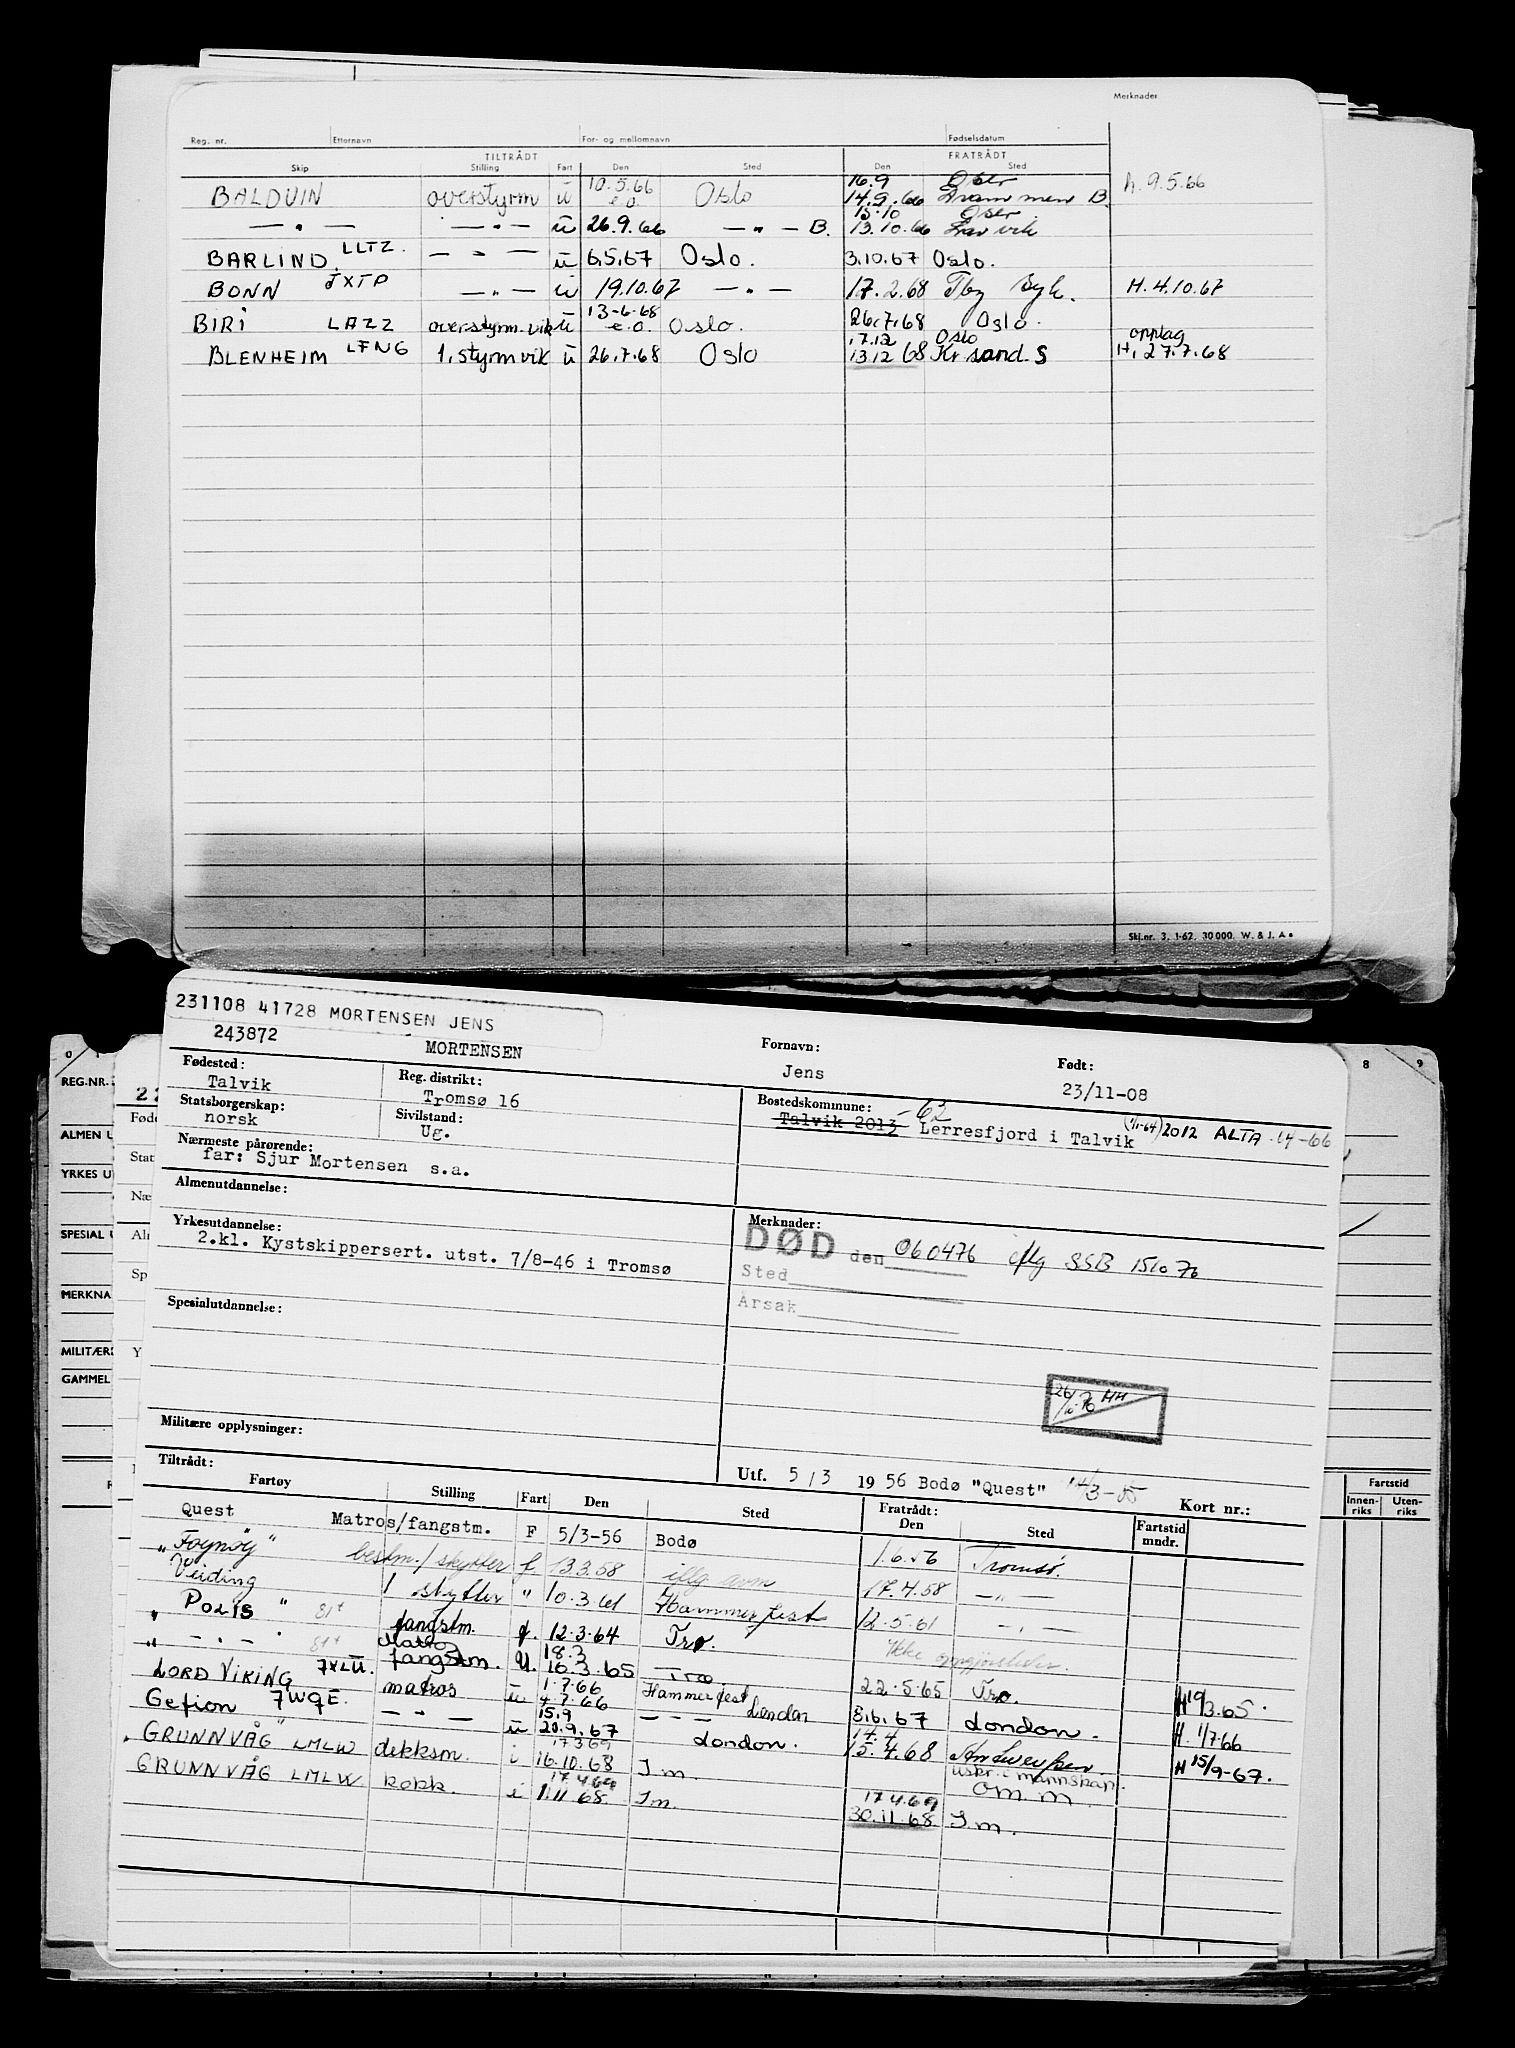 Merknader
Reg. nr. Etternavn For- og mellomnavn Fødselsdatum
TILTRÅDT FRATRÅDT
Skip Stilling Fart Den Sted Den Sted
BALDUIN overstyrm u 10.5.66 e.o. Oslo 16.9 Oslo 14.9.66 Drammen B. h. 9.5.66
— " — — " — u 26.9.66 — " — B. 15.10 Oslo 13.10.66 Larvik
BARLIND LLTZ. — " — u 6.5.67 Oslo. 3.10.67 Oslo.
BONN JXTP — " — u 19.10.67 — " — 17.2.68 Tby syk. H. 4.10.67
BIRI LAZZ overstyrm. vik u 13-6-68 e.o. Oslo. 26.7.68 Oslo.
BLENHEIM LFNG 1. styrm vik u 26.7.68 Oslo 17.12 Oslo 13.12 68 Kr sand. S opplag H. 27.7.68
Skj.nr. 3. 1-62. 30 000. W. & J. A•
231108 41728 MORTENSEN JENS
243872 MORTENSEN Fornavn: Jens Født: 23/11-08
Fødested: Talvik Reg. distrikt: Tromsø 16
Statsborgerskap: norsk Sivilstand: Ug.
Bostedskommune: Talvik 2013 -62 Lerresfjord i Talvik (1/1-64) 2012 ALTA -64-66
Nærmeste pårørende: far: Sjur Mortensen s.a.
Almenutdannelse:
Yrkesutdannelse: 2.kl. Kystskippersert. utst. 7/8-46 i Tromsø
Merknader:
DØD den 060476 iflg SSB 151076
Sted
Årsak
Spesialutdannelse:
26/10 76 HH
Militære opplysninger:
Utf. 5/3 1956 Bodø "Quest" Kort nr.:
Tiltrådt: Fratrådt:
Fartøy Stilling Fart Den Sted Den Sted Fartstid mndr.
Quest Matros/fangstm. F 5/3-56 Bodø 1.6.56 Tromsø.
"Fojnøy" bestm./skytter f 13.3.58 illg avm 17.4.58 — " —
Veiding 1 skytter " 10.3.61 Hammerfest 12-5-61 — " —
" POLIS " 81t fangstm. f. 12-3-64 Trø. Ikke
" — " — " 81t Matros fangstm. U. 18.3 16.3.65 Trø 22.5.65 Trø. H 19/3.65.
LORD VIKING JXLU. matros u 1.7.66 4.7.66 Hammerfest 8.6.67 London. H. 1/7.66
Gefion JWQE. — " — u 15.9 20.9.67 — — — London 14.4 15.4.68 Antwerpen H 15/9-67.
"GRUNNVÅG" LMLW dekksm. i 17369 16.10.68 London. I m. uskr. i mannskap. om. m.
GRUNNVÅG LMLW kokk. i 17469 1.11 68. I m. 17469 30.11.68 I m.
0 1 8 9
REG.NR. 22
ALMEN U
YRKES U
SPESIAL U
MERKNA
MILITÆR
GAMMEL
Fød
Stat
Næ
Aln
Sp
Fartstid
Innen-riks Uten-riks